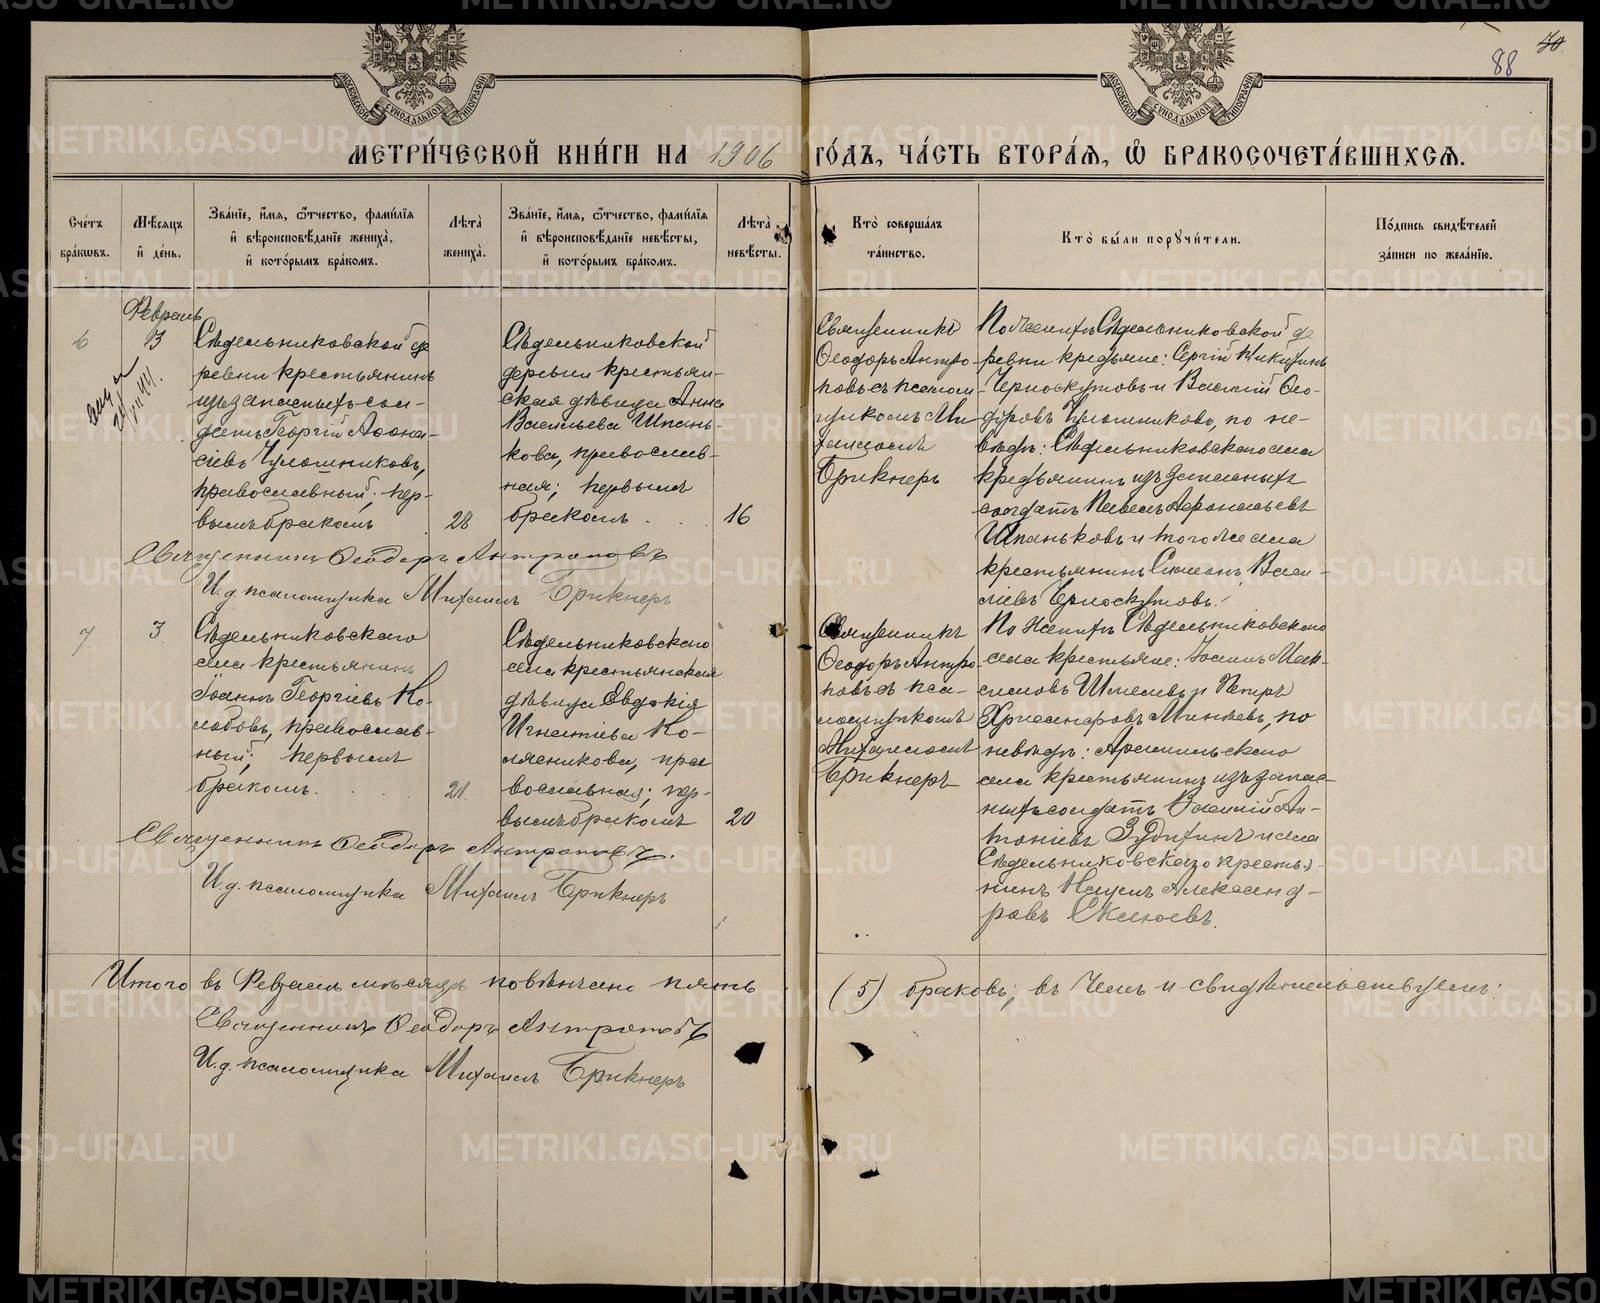 88
МЕТРИ́ЧЕСКОЙ КНИ́ГИ НА 1906 ГО́ДЪ, ЧА́СТЬ ВТОРА́Я, Ѡ БРАКОСОЧЕТА́ВШИХСЯ.
Сче́тъ бра́кѡвъ.
Мѣ́сяцъ и де́нь.
Зва́нїе, и́мя, ѻ҆́тчество, фами́лїя
и вѣроисповѣ́данїе жениха̀,
и кото́рымъ бра́комъ.
Лѣта̀ жениха̀.
Зва́нїе, и́мя, ѻ҆́тчество, фами́лїя
и вѣроисповѣ́данїе невѣ́сты,
и кото́рымъ бра́комъ.
Лѣта̀ невѣ́сты.
Кто̀ соверша́лъ та́инство.
Кто̀ бы́ли порꙋчи́тели.
По́дпись свидѣ́телей за́писи по жела́нїю.
Февраль
6
3
Сѣдельниковской де
ревни крестьянинъ
изъ запасныхъ сол-
датъ Георгій Аѳана-
сіевъ Чулошниковъ,
православный; пер-
вымъ бракомъ
28
Сѣдельниковской
деревни крестьян-
ская дѣвица Анна
Васильева Шпань-
кова, православ-
ная; первымъ
бракомъ.
16
Священникъ
Ѳеодоръ Антро-
повъ съ псалом-
щикомъ Ми
хаиломъ
Брикнеръ
По женихѣ Сѣдельниковской де
ревни крестьяне: Сергій Никитинъ
Черноскутовъ и Василій Ѳео-
доровъ Чулошниковъ, по не-
вѣстѣ: Сѣдельниковскаго села
крестьянинъ изъ запасныхъ
солдатъ Павелъ Афонасьевъ
Шпаньковъ и того же села
крестьянинъ Симеонъ Васи-
льевъ Черноскутовъ.
Священникъ Ѳеодоръ Антроповъ
И.д. псаломщика Михаилъ Брикнеръ
7
3
Сѣдельниковскаго
села крестьянинъ
Іоаннъ Георгіевъ Ко-
лобовъ, православ-
ный; первымъ
бракомъ.
21
Сѣдельниковскаго
села крестьянская
дѣвица Евдокія
Игнатіева Ко-
лясникова, пра
вославная; пер-
вымъ бракомъ
20
Священникъ
Ѳеодоръ Антро-
повъ съ пса-
ломщикомъ
Михаиломъ
Брикнеръ
По женихѣ Сѣдельниковскаго
села крестьяне: Іоаннъ Мак-
симовъ Шмелевъ и Петръ
Александровъ Минѣевъ, по
невѣстѣ: Арамильскаго
села крестьянинъ изъ запас-
ныхъ солдатъ Василій Ан-
тоніевъ Зудихинъ и села
Сѣдельниковскаго крестья-
нинъ Наумъ Александ-
ровъ
Священникъ Ѳеодоръ Антроповъ.
И.д. псаломщика Михаилъ Брикнеръ
Итого въ Февралѣ мѣсяцѣ повѣнчано пять (5) браковъ; въ чемъ и свидѣтельствуемъ:
Священникъ Ѳеодоръ Антроповъ
И.д. псаломщика Михаилъ Брикнеръ
METRIKI.GASO-URAL.RU